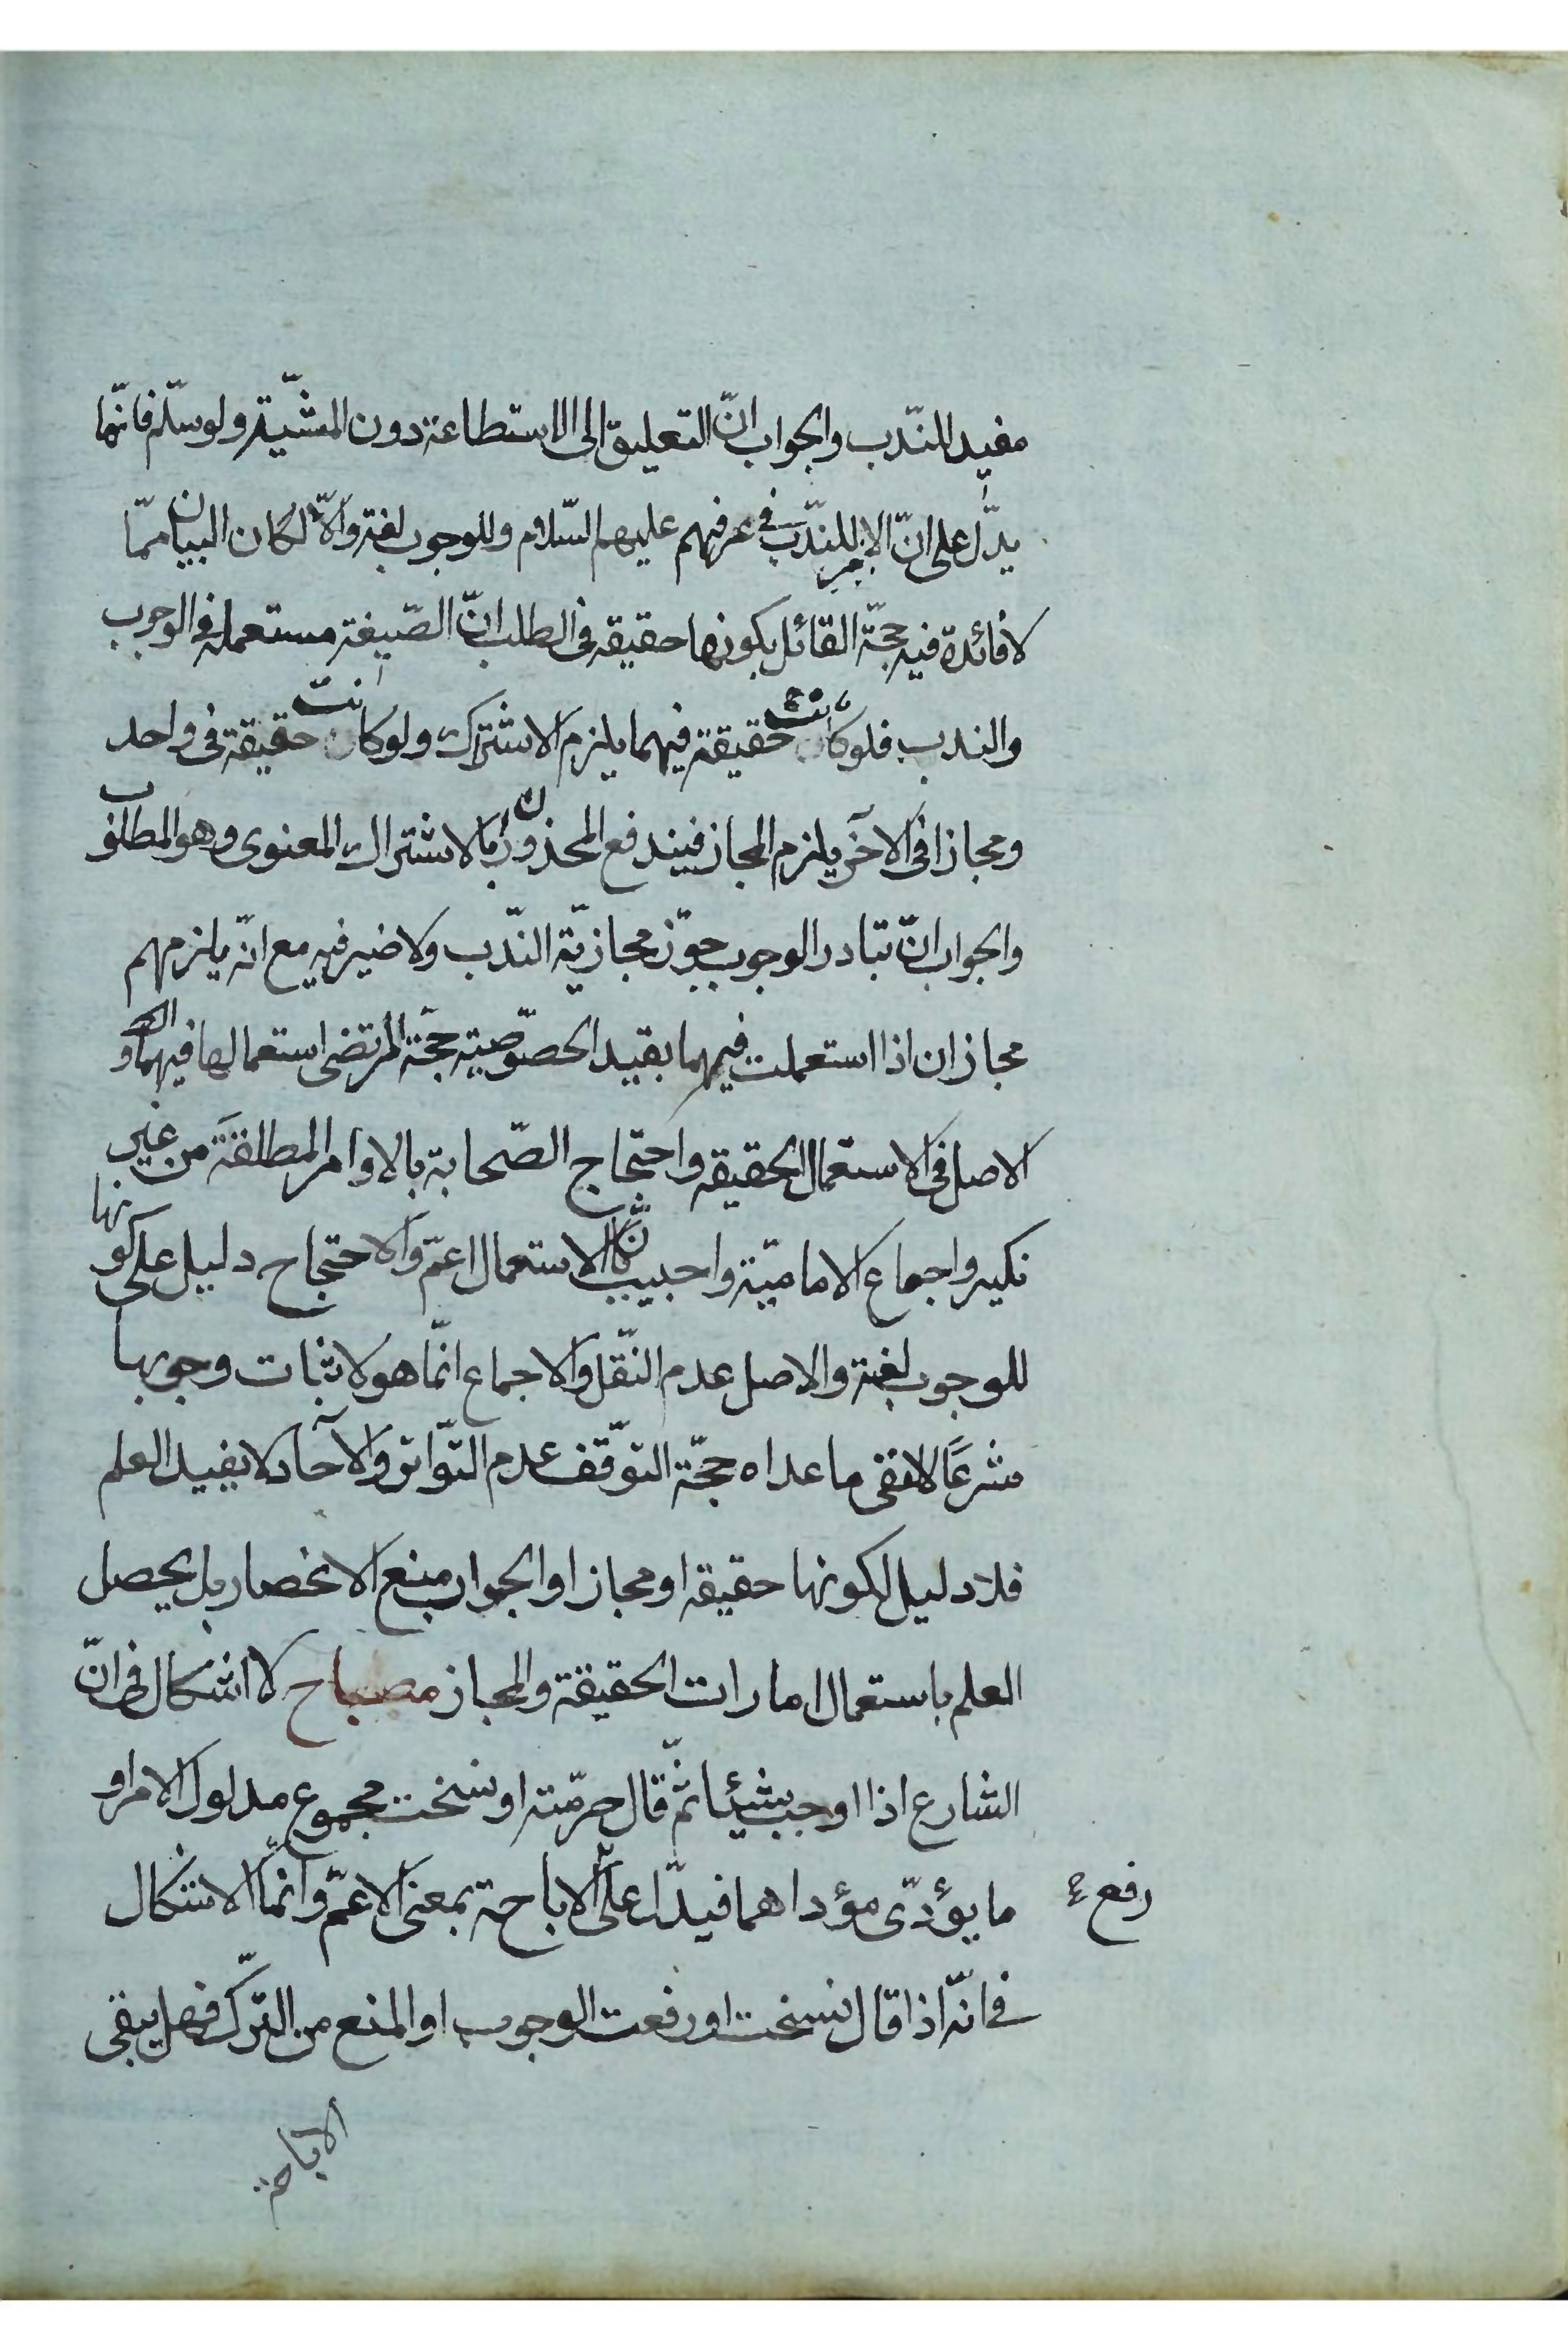 مفيد للنّدب والجواب انّ التعليق الى الاستطاعة دون المشيّة ولو سلّم فانّها
يدّل على انّ الامر للندّب فى عرفهم عليهم السّلام وللوجوب لغة والّا لكان البيان ممّا
لا فائدة فيه حجّة القائل بكونها حقيقه فى الطلب انّ الصّيغة مستعمله فى الوجوب
والندب فلو كانت حقيقة فيهما يلزم الاشتراك ولو كانت حقيقة فى واحد
ومجازا فى الآخر يلزم المجاز فيندفع المحذوران بالاشتراك المعنوى وهو المطلوب
والجواب انّ تبادر الوجوب جوّز مجازيّة النّدب ولا ضير فيه مع انّه يلزمهم
مجازان اذا استعملت فيهما بقيد الخصوّصيته حجّة المرتضى استعمالها فيهما و
الاصل فى الاستعمال الحقيقه واحتّجاج الصّحابة بالاوامر المطلقة من غير
نكير واجماع الاماميّة واجيب بانّ الاستعمال اعمّ والاحتجاج دليل على كونها
للوجوب لغة والاصل عدم النّقل والاجماع انّما هو لاثبات وجوبها
شرعًا لا نفى ما عداه حجّة التوّقف عدم التوّاتر والآحاد لا يفيد العلم
فلا دليل لكونها حقيقه او مجازا والجواب منع الانحصار بل يحصل
العلم باستعمال امارات الحقيقة والمجاز مصباح لا اشكال فى انّ
الشارع اذا اوجب شيئا ثمّ قال حرّمته او نسخت مجموع مدلول الامر او
رفع ما يؤدّى مؤداهما فيدّل على الاباحة بمعنى الاعمّ وانمّا الاشكال
فى انّه اذا قال نسخت او رفعت الوجوب او المنع من التّرك فهل يبقى
الاباحة